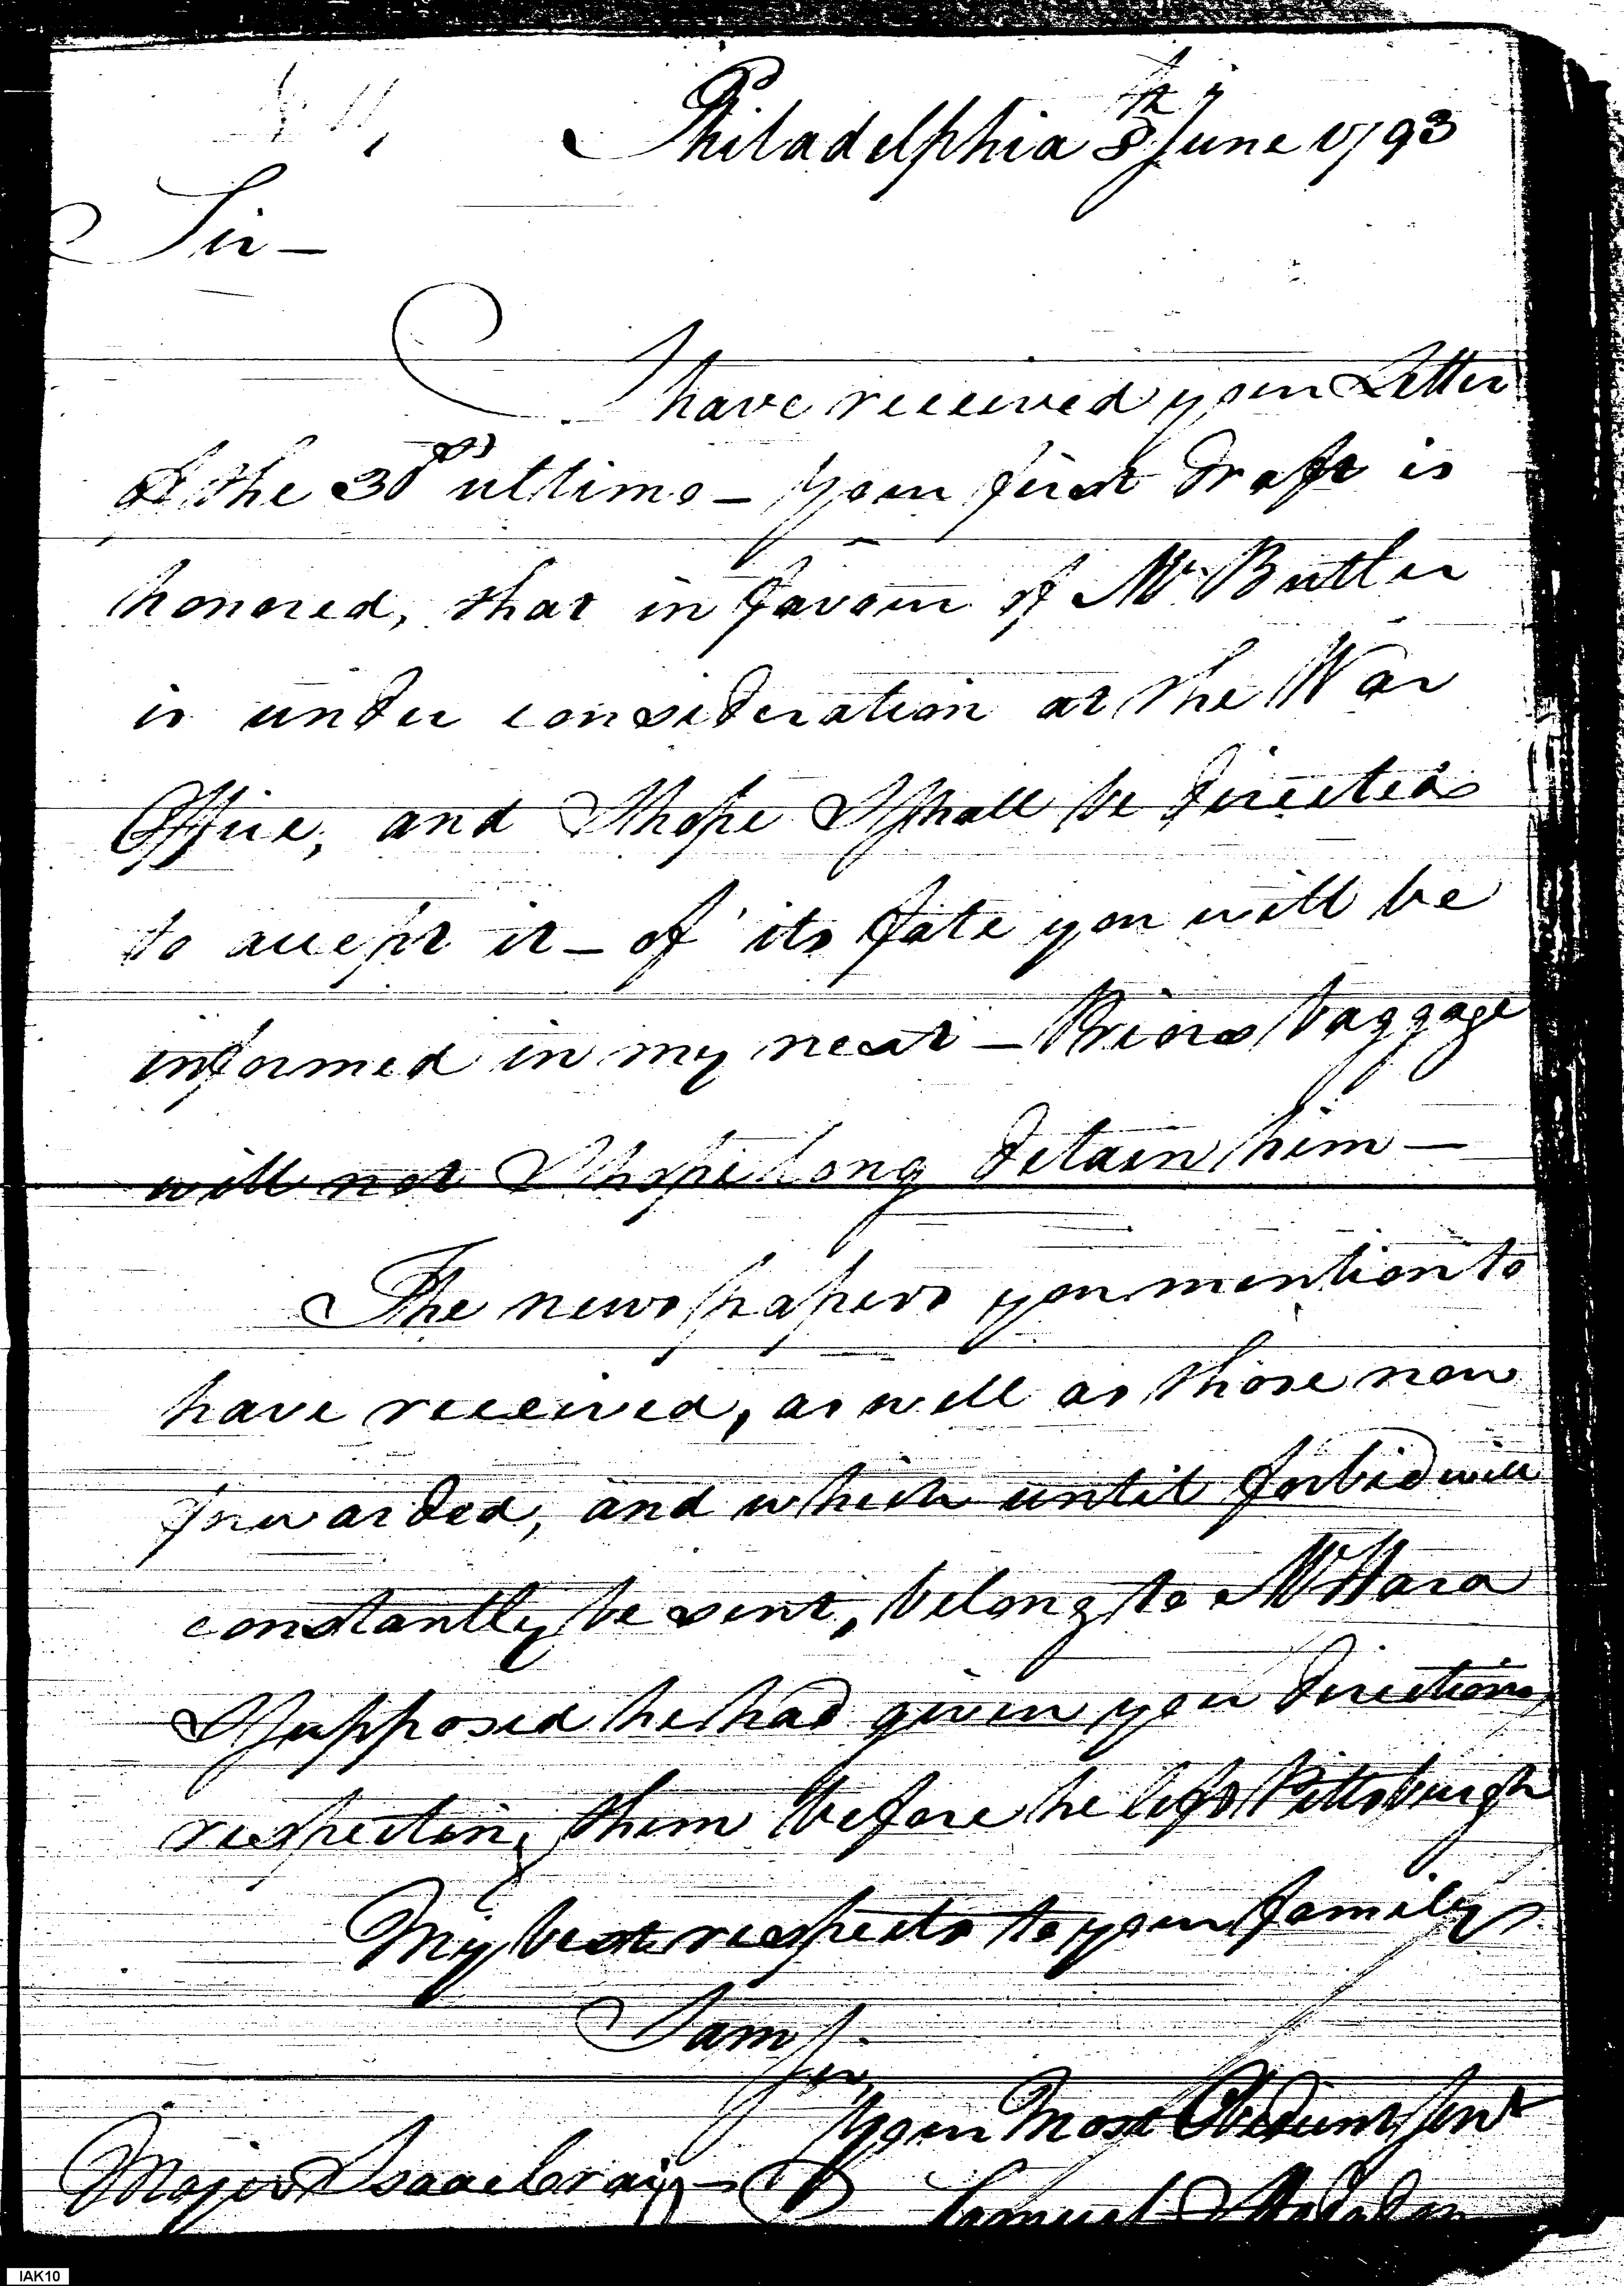 Philadelphia 8th June 1793
Sir —
I have received your Letter
of the 30th ultimo — Your first draft is
honored, that in favour of Mr Butler
is under consideration at the War
Office, and I hope I shall be directed
to accept it — of its fate you will be
informed in my next — Priors baggage
will not I hope long detain him —
The news papers you mention to
have received, as well as those now
forwarded, and which until forbid will
constantly be sent, belong to OHara
I supposed he had given you directions
respecting them before he left Pittsburgh
My best respects to your family
I am
Sir
Your Most Obedient Servt
Major Isaac Craig — Samuel Hodgdon
IAK10